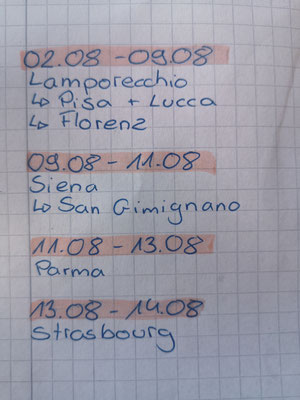 02.08 - 09.08
Lamporecchio
↳ Pisa + Lucca
↳ Florenz
09.08 - 11.08
Siena
↳ San Gimignano
11.08 - 13.08
Parma
13.08 - 14.08
Strasbourg